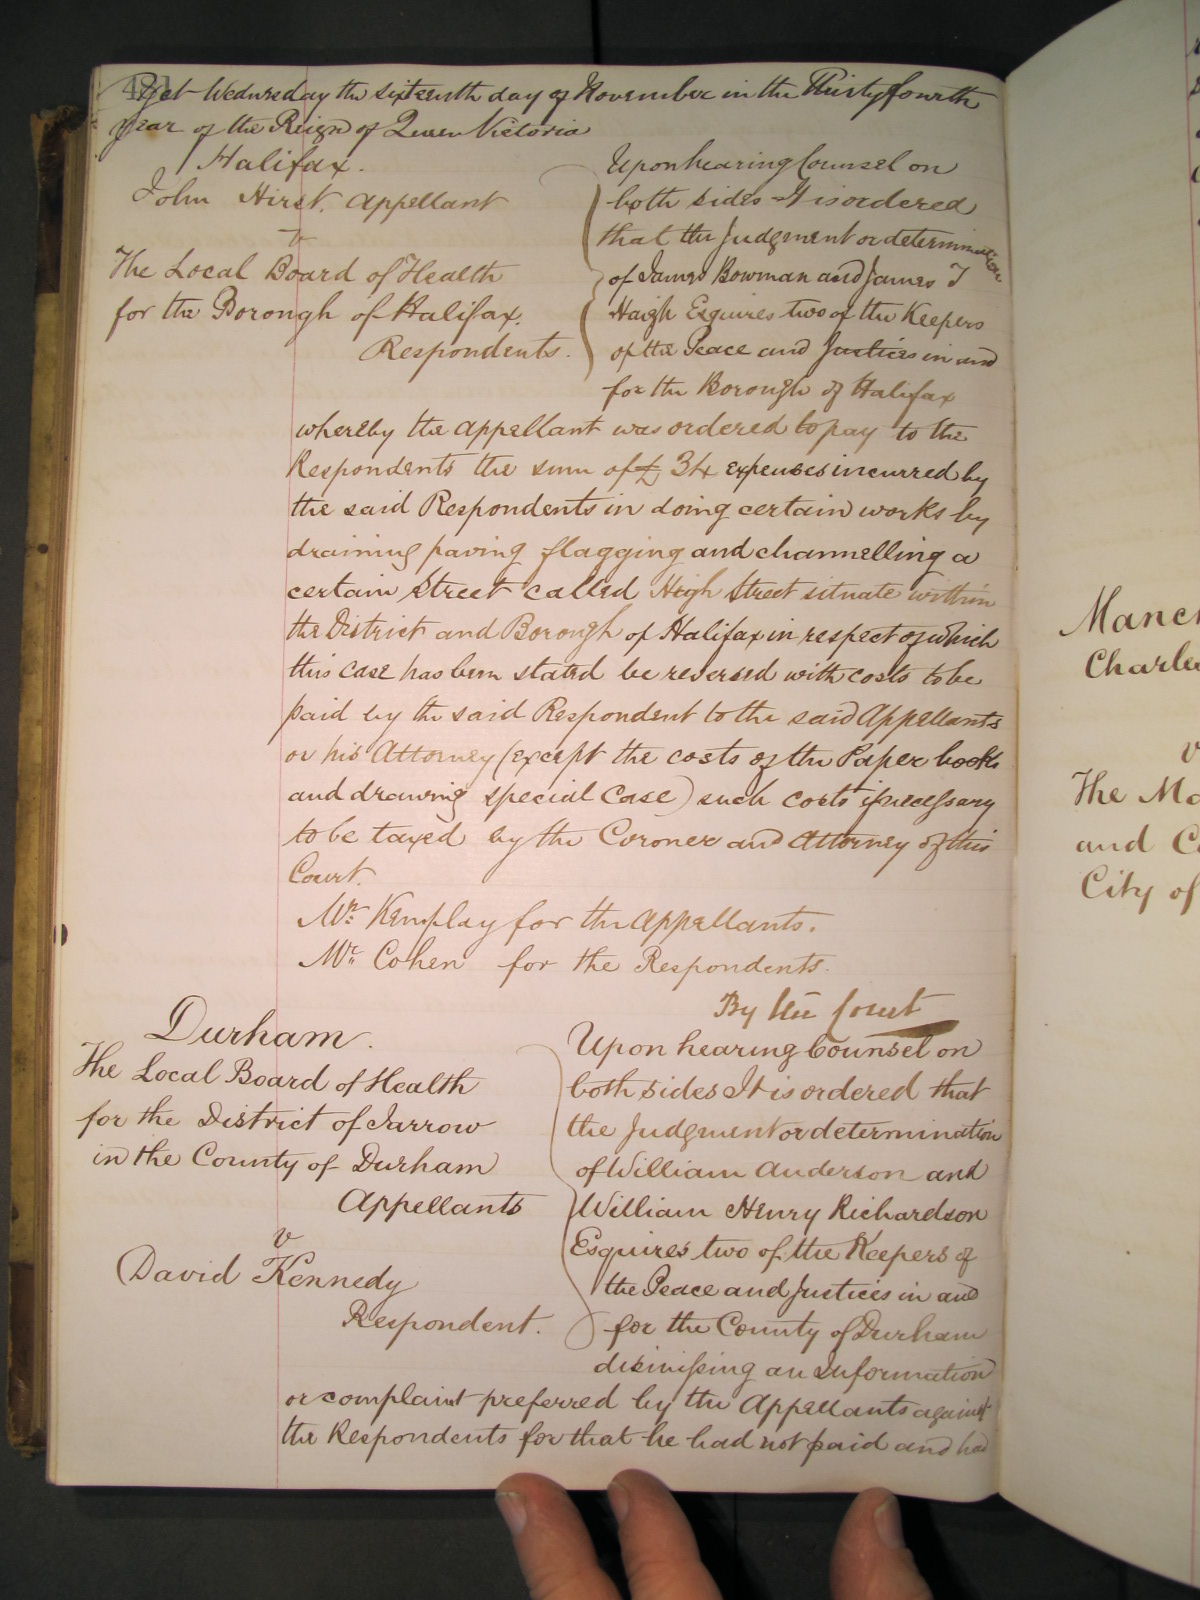 Yet Wednesday the sixteenth day of November in the Thirty fourth
year of the Reign of Queen Victoria
Halifax.
John Hirst. Appellant
v
The Local Board of Health
for the Borough of Halifax.
Respondents.
Upon hearing Counsel on
both sides It is ordered
that the Judgment or determination
of James Bowman and James T
Haigh Esquires two of the Keepers
of the Peace and Justices in and
for the Borough of Halifax
whereby the appellant was ordered to pay to the
Respondents the sum of £ 34 expenses incurred by
the said Respondents in doing certain works by
draining paving flagging and channelling a
certain Street called High Street situate within
the District and Borough of Halifax in respect of which
this case has been stated be reversed with costs to be
paid by the said Respondent to the said Appellants
or his Attorney (except the costs of the Paper books
and drawing special Case) such costs if necessary
to be taxed by the Coroner and Attorney of this
Court.
Mr. Kemplay for the Appellants.
Mr. Cohen for the Respondents.
By the Court
Durham.
The Local Board of Health
for the District of Jarrow
in the County of Durham
Appellants
v
David Kennedy
Respondent.
Upon hearing Counsel on
both sides It is ordered that
the Judgment or determination
of William Anderson and
William Henry Richardson
Esquires two of the Keepers of
the Peace and Justices in and
for the County of Durham
dismissing an Information
or complaint preferred by the Appellants against
the Respondents for that he had not paid and had
Manch
Charle
v
The Ma
and C
City of